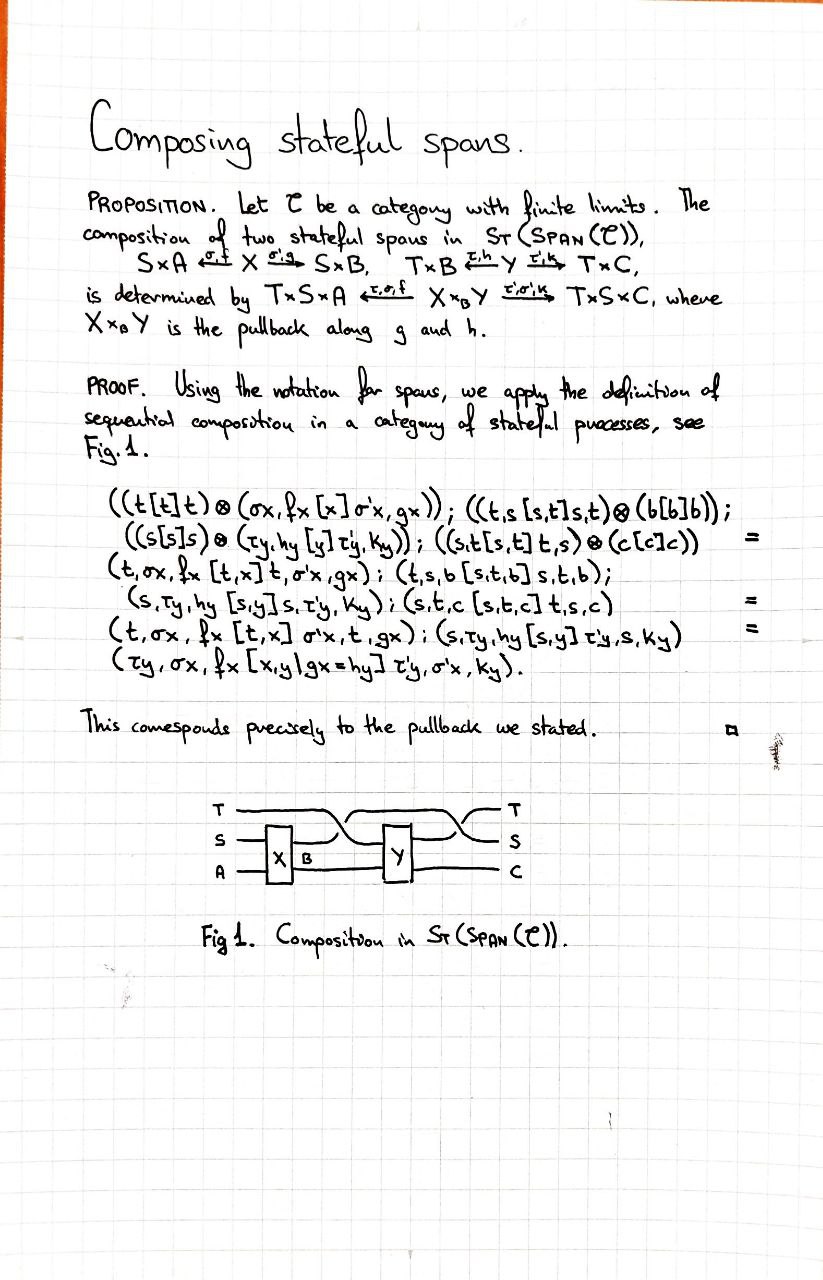 Composing stateful spans.
PROPOSITION. Let ℂ be a category with finite limits. The
composition of two stateful spans in ST(SPAN(ℂ)),
S×A ←σ,f X σ',g→ S×B, T×B ←τ,h Y τ',k→ T×C,
is determined by T×S×A ←τ,σ,f X×_B Y τ',σ',k→ T×S×C, where
X×_B Y is the pullback along g and h.
PROOF. Using the notation for spans, we apply the definition of
sequential composition in a category of stateful processes, see
Fig. 1.
((t[t]t)⊗(σx,fx[x]σ'x,gx)); ((t,s[s,t]s,t)⊗(b[b]b));
((s[s]s)⊗(τy,hy[y]τ'y,ky)); ((s,t[s,t]t,s)⊗(c[c]c)) =
(t,σx,fx[t,x]t,σ'x,gx); (t,s,b[s,t,b]s,t,b);
(s,τy,hy[s,y]s,τ'y,ky); (s,t,c[s,t,c]t,s,c) =
(t,σx,fx[t,x]σ'x,t,gx); (s,τy,hy[s,y]τ'y,s,ky) =
(τy,σx,fx[x,y|gx=hy]τ'y,σ'x,ky).
This corresponds precisely to the pullback we stated. □
T T
S S
X B Y
A C
Fig 1. Composition in ST(SPAN(ℂ)).